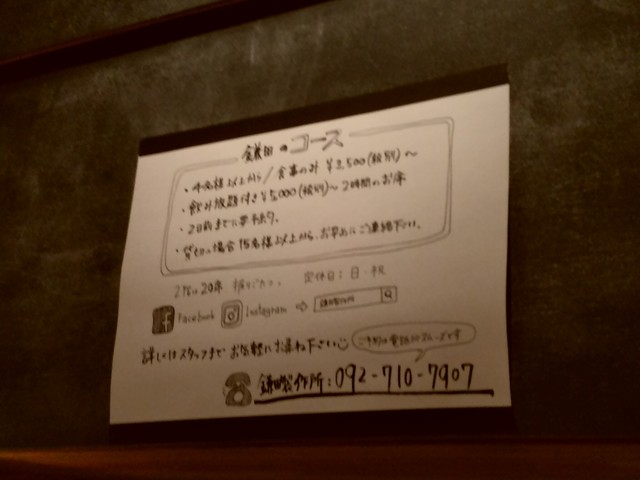 鎌田のコース
・4名様以上から/食事のみ ¥3,500(税別)〜
・飲み放題付き ¥5,000(税別)〜2時間のお席
・2日前までに要予約。
・貸切の場合15名様以上から。お早めにご連絡下さい。
2階は20席 掘りごたつ。 定休日:日・祝
Facebook Instagram ⇨
詳しくはスタッフまでお気軽にお尋ね下さい
ご予約は電話がスムーズです
鎌田製作所:092-710-7907